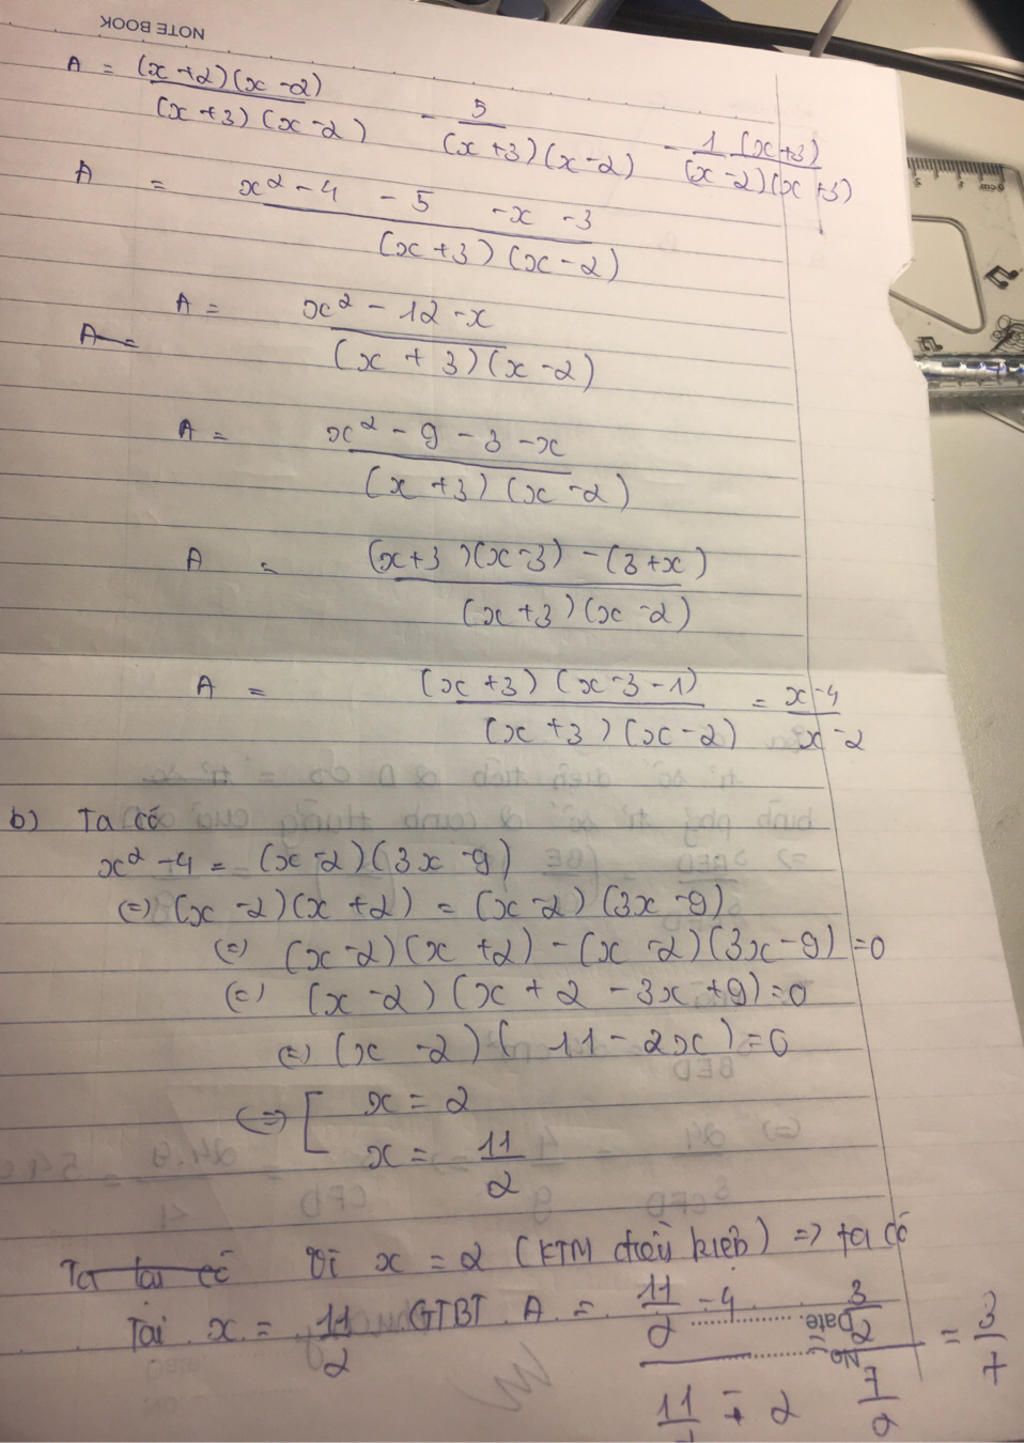 NOTE BOOK
A = (x+2)(x-2) / (x+3)(x-2) - 5 / (x+3)(x-2) - 1(x+3) / (x-2)(x+3)
A = x² - 4 - 5 - x - 3 / (x+3)(x-2)
A = x² - 12 - x / (x+3)(x-2)
A =
A = x² - 9 - 3 - x / (x+3)(x-2)
A = (x+3)(x-3) - (3+x) / (x+3)(x-2)
A = (x+3)(x-3-1) / (x+3)(x-2) = x-4 / x-2
b) Ta có
x² - 4 = (x-2)(3x-9)
(=) (x-2)(x+2) = (x-2)(3x-9)
(=) (x-2)(x+2) - (x-2)(3x-9) = 0
(=) (x-2)(x+2-3x+9) = 0
(=) (x-2)(11-2x) = 0
<=> [ x = 2
x = 11/2
Ta lại có Vì x = 2 (KTM điều kiện) => ta có
Tại x = 11/2 GTBT A = 11/2 - 4 / 11/2 - 2 = 3/2 / 7/2 = 3/7
Date
No